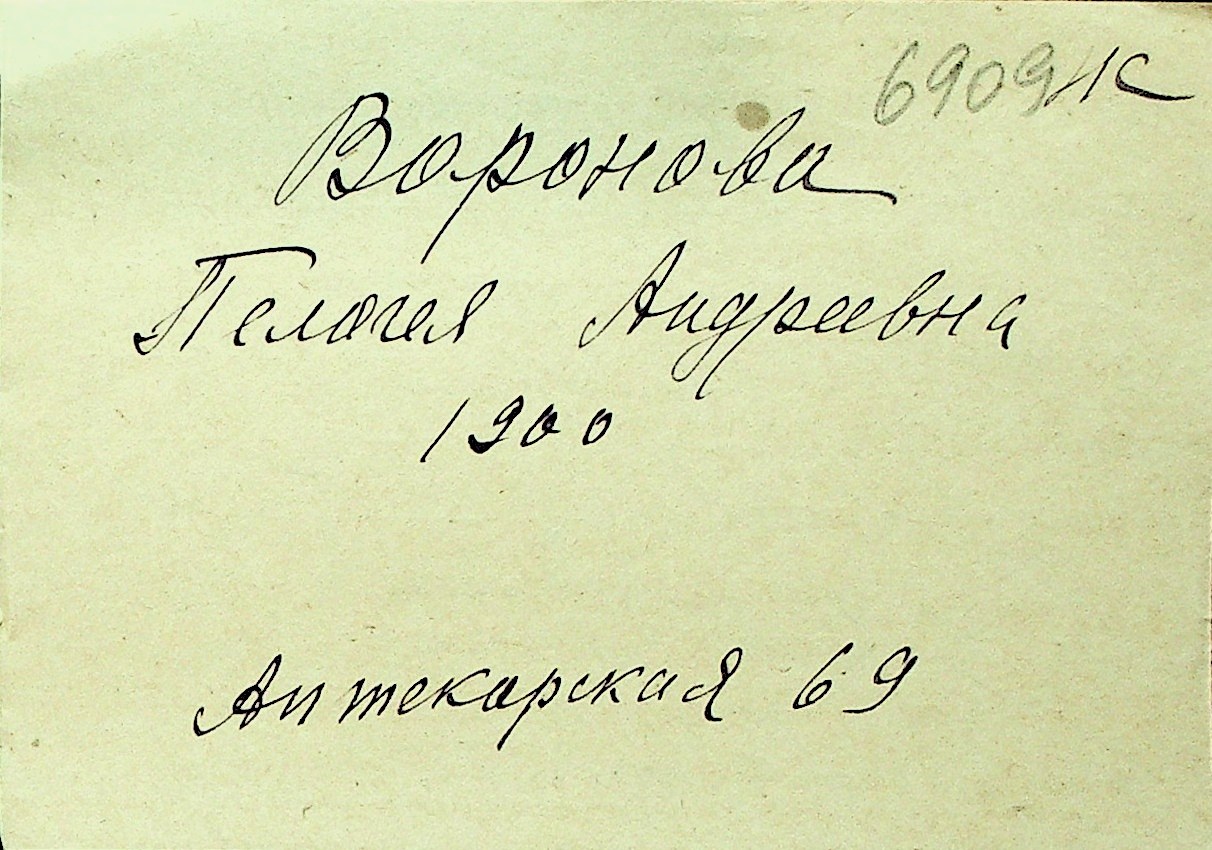 6909 НС
Воронова
Пелагея Андреевна
1900
Аптекарская 69